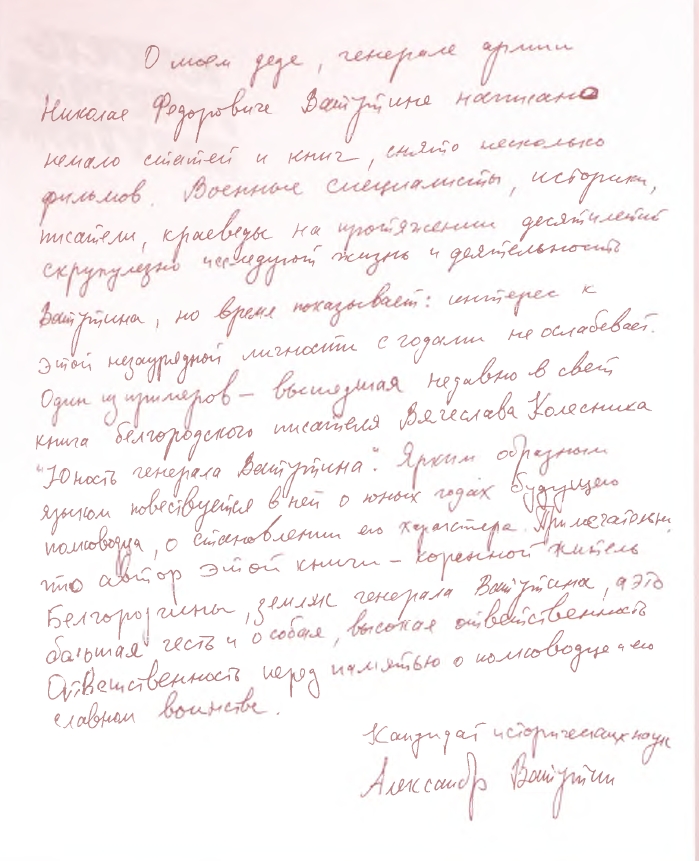 О моем деде, генерале армии
Николае Федоровиче Ватутине написано
немало статей и книг, снято несколько
фильмов. Военные специалисты, историки,
писатели, краеведы на протяжении десятилетий
скрупулезно исследуют жизнь и деятельность
Ватутина, но время показывает: интерес к
этой незаурядной личности с годами не ослабевает.
Один из примеров – вышедшая недавно в свет
книга белгородского писателя Вячеслава Колесника
"Юность генерала Ватутина". Ярким образным
языком повествуется в ней о юных годах будущего
полководца, о становлении его характера. Примечательно,
что автор этой книги – коренной житель
Белгородчины, земляк генерала Ватутина, а это
большая честь и особая, высокая ответственность
Ответственность перед памятью о полководце и его
славном воинстве.
Кандидат исторических наук
Александр Ватутин